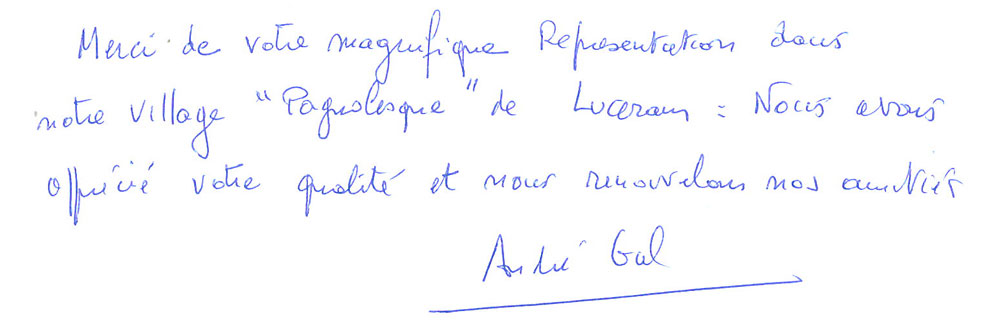 Merci de votre magnifique Représentation dans
notre village "Pagnolesque" de Luceram : Nous avons
apprécié votre qualité et nous renouvelons nos amitiés
André Gal